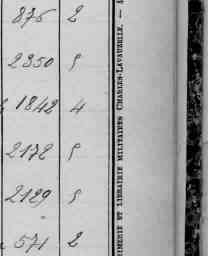 875 2
2350 5
1842 4
2172 5
2129 5
571 2
RIMERIE ET LIBRAIRIE MILITAIRES CHARLES-LAVAUZELLE. —